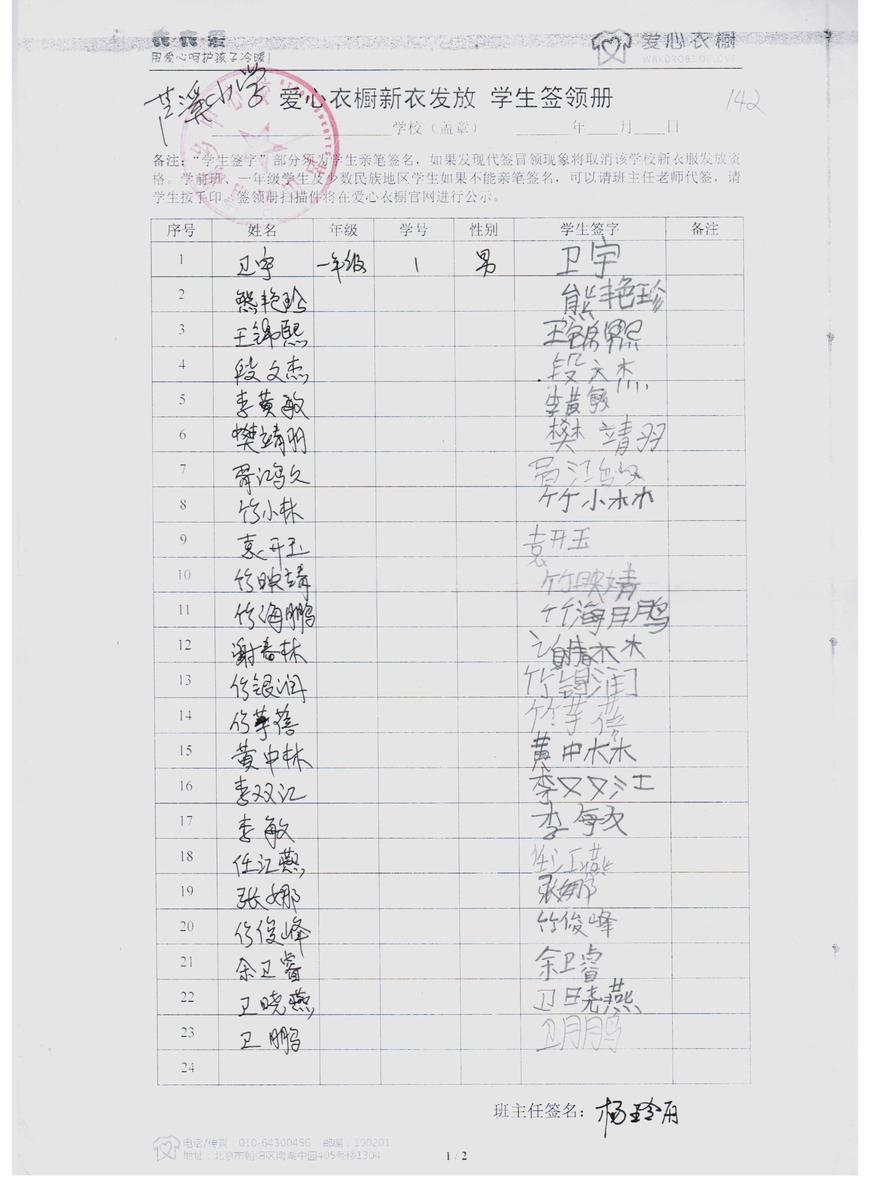 衣衣爱
用爱心呵护孩子冷暖!
爱心衣橱
WARDROBE OF LOVE
芦溪小学 爱心衣橱新衣发放 学生签领册 142
学校（盖章） 年 月 日
备注："学生签字"部分须为学生亲笔签名，如果发现代签冒领现象将取消该学校新衣服发放资
格。学前班、一年级学生及少数民族地区学生如果不能亲笔签名，可以请班主任老师代签，请
学生按手印。签领册扫描件将在爱心衣橱官网进行公示。
序号 姓名 年级 学号 性别 学生签字 备注
1 卫宇 一年级 1 男 卫宇
2 熊艳珍 熊艳珍
3 王锦熙 王锦熙
4 段文杰 段文杰
5 李黄敏 李黄敏
6 樊靖羽 樊靖羽
7 胥江鸿
8 竹小林 竹小林
9 袁开玉 袁开玉
10 竹映靖 竹映婧
11 竹海鹏 竹海鹏
12 谢春林
13 竹银润 竹银润
14 竹莘蓓 竹莘蓓
15 黄中林 黄中林
16 李双江 李双江
17 李敏 李敏
18 任江燕 任江燕
19 张娜 张娜
20 竹俊峰 竹俊峰
21 余卫睿 余卫睿
22 卫晓燕 卫晓燕
23 卫鹏 卫鹏
24
班主任签名：杨玲丹
电话/传真：010-64300456 邮编：100201
地址：北京市朝阳区南湖中园405号楼1304
1 / 2